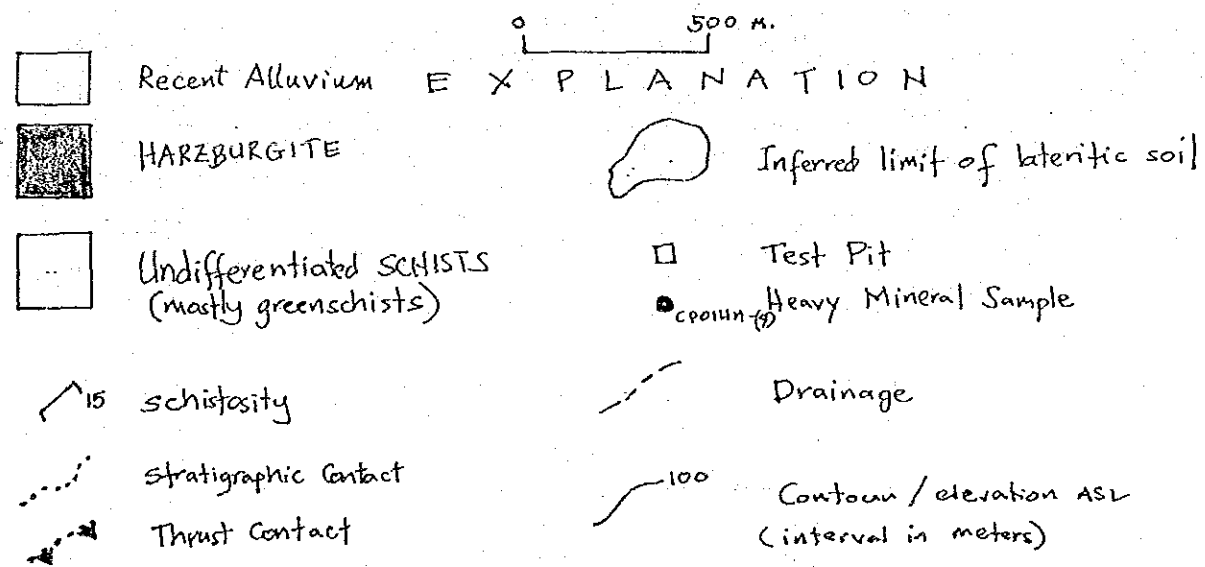 0 500 M.
Recent Alluvium EXPLANATION
HARZBURGITE
Inferred limit of lateritic soil
Undifferentiated SCHISTS
(mostly greenschists)
Test Pit
Heavy Mineral Sample
15 schistosity
Drainage
Stratigraphic Contact
Thrust Contact
100
Contour / elevation ASL
(interval in meters)